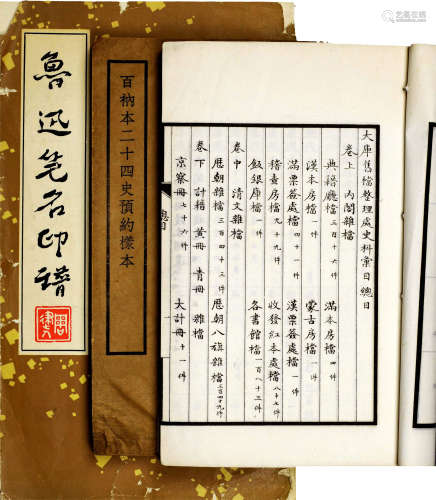 魯迅笔名印譜
百衲本二十四史預約樣本
大庫舊檔整理處史料彙目總目
卷上 內閣雜檔
典籍廳檔 三百十六件 滿本房檔 四件
漢本房檔 一件 蒙古房檔 一件
滿票簽處檔 一件 漢票簽處檔 一件
稽查房檔 九十九件 收發紅本處檔 八十七件
飯銀庫檔 一件 各書館檔 一百八十三件
卷中 清文雜檔
歷朝雜檔 三百四十三件 歷朝八旗雜檔 三百四十九件
卷下 計籍 黃冊 青冊 雜檔
京察冊 七十六件 大計冊 十一件
總目
艺狐在线